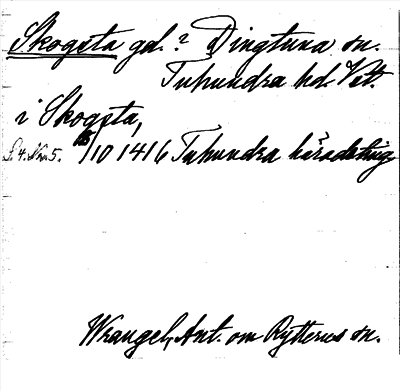 Skogsta gd. ? Dingtuna sn.
Tuhundra hd. Vstt.
i Skogsta,
S. 4. Nr. 5. 15/10 1416 Tuhundra häradsting
Wrangel, Ant. om Rytterns sn.